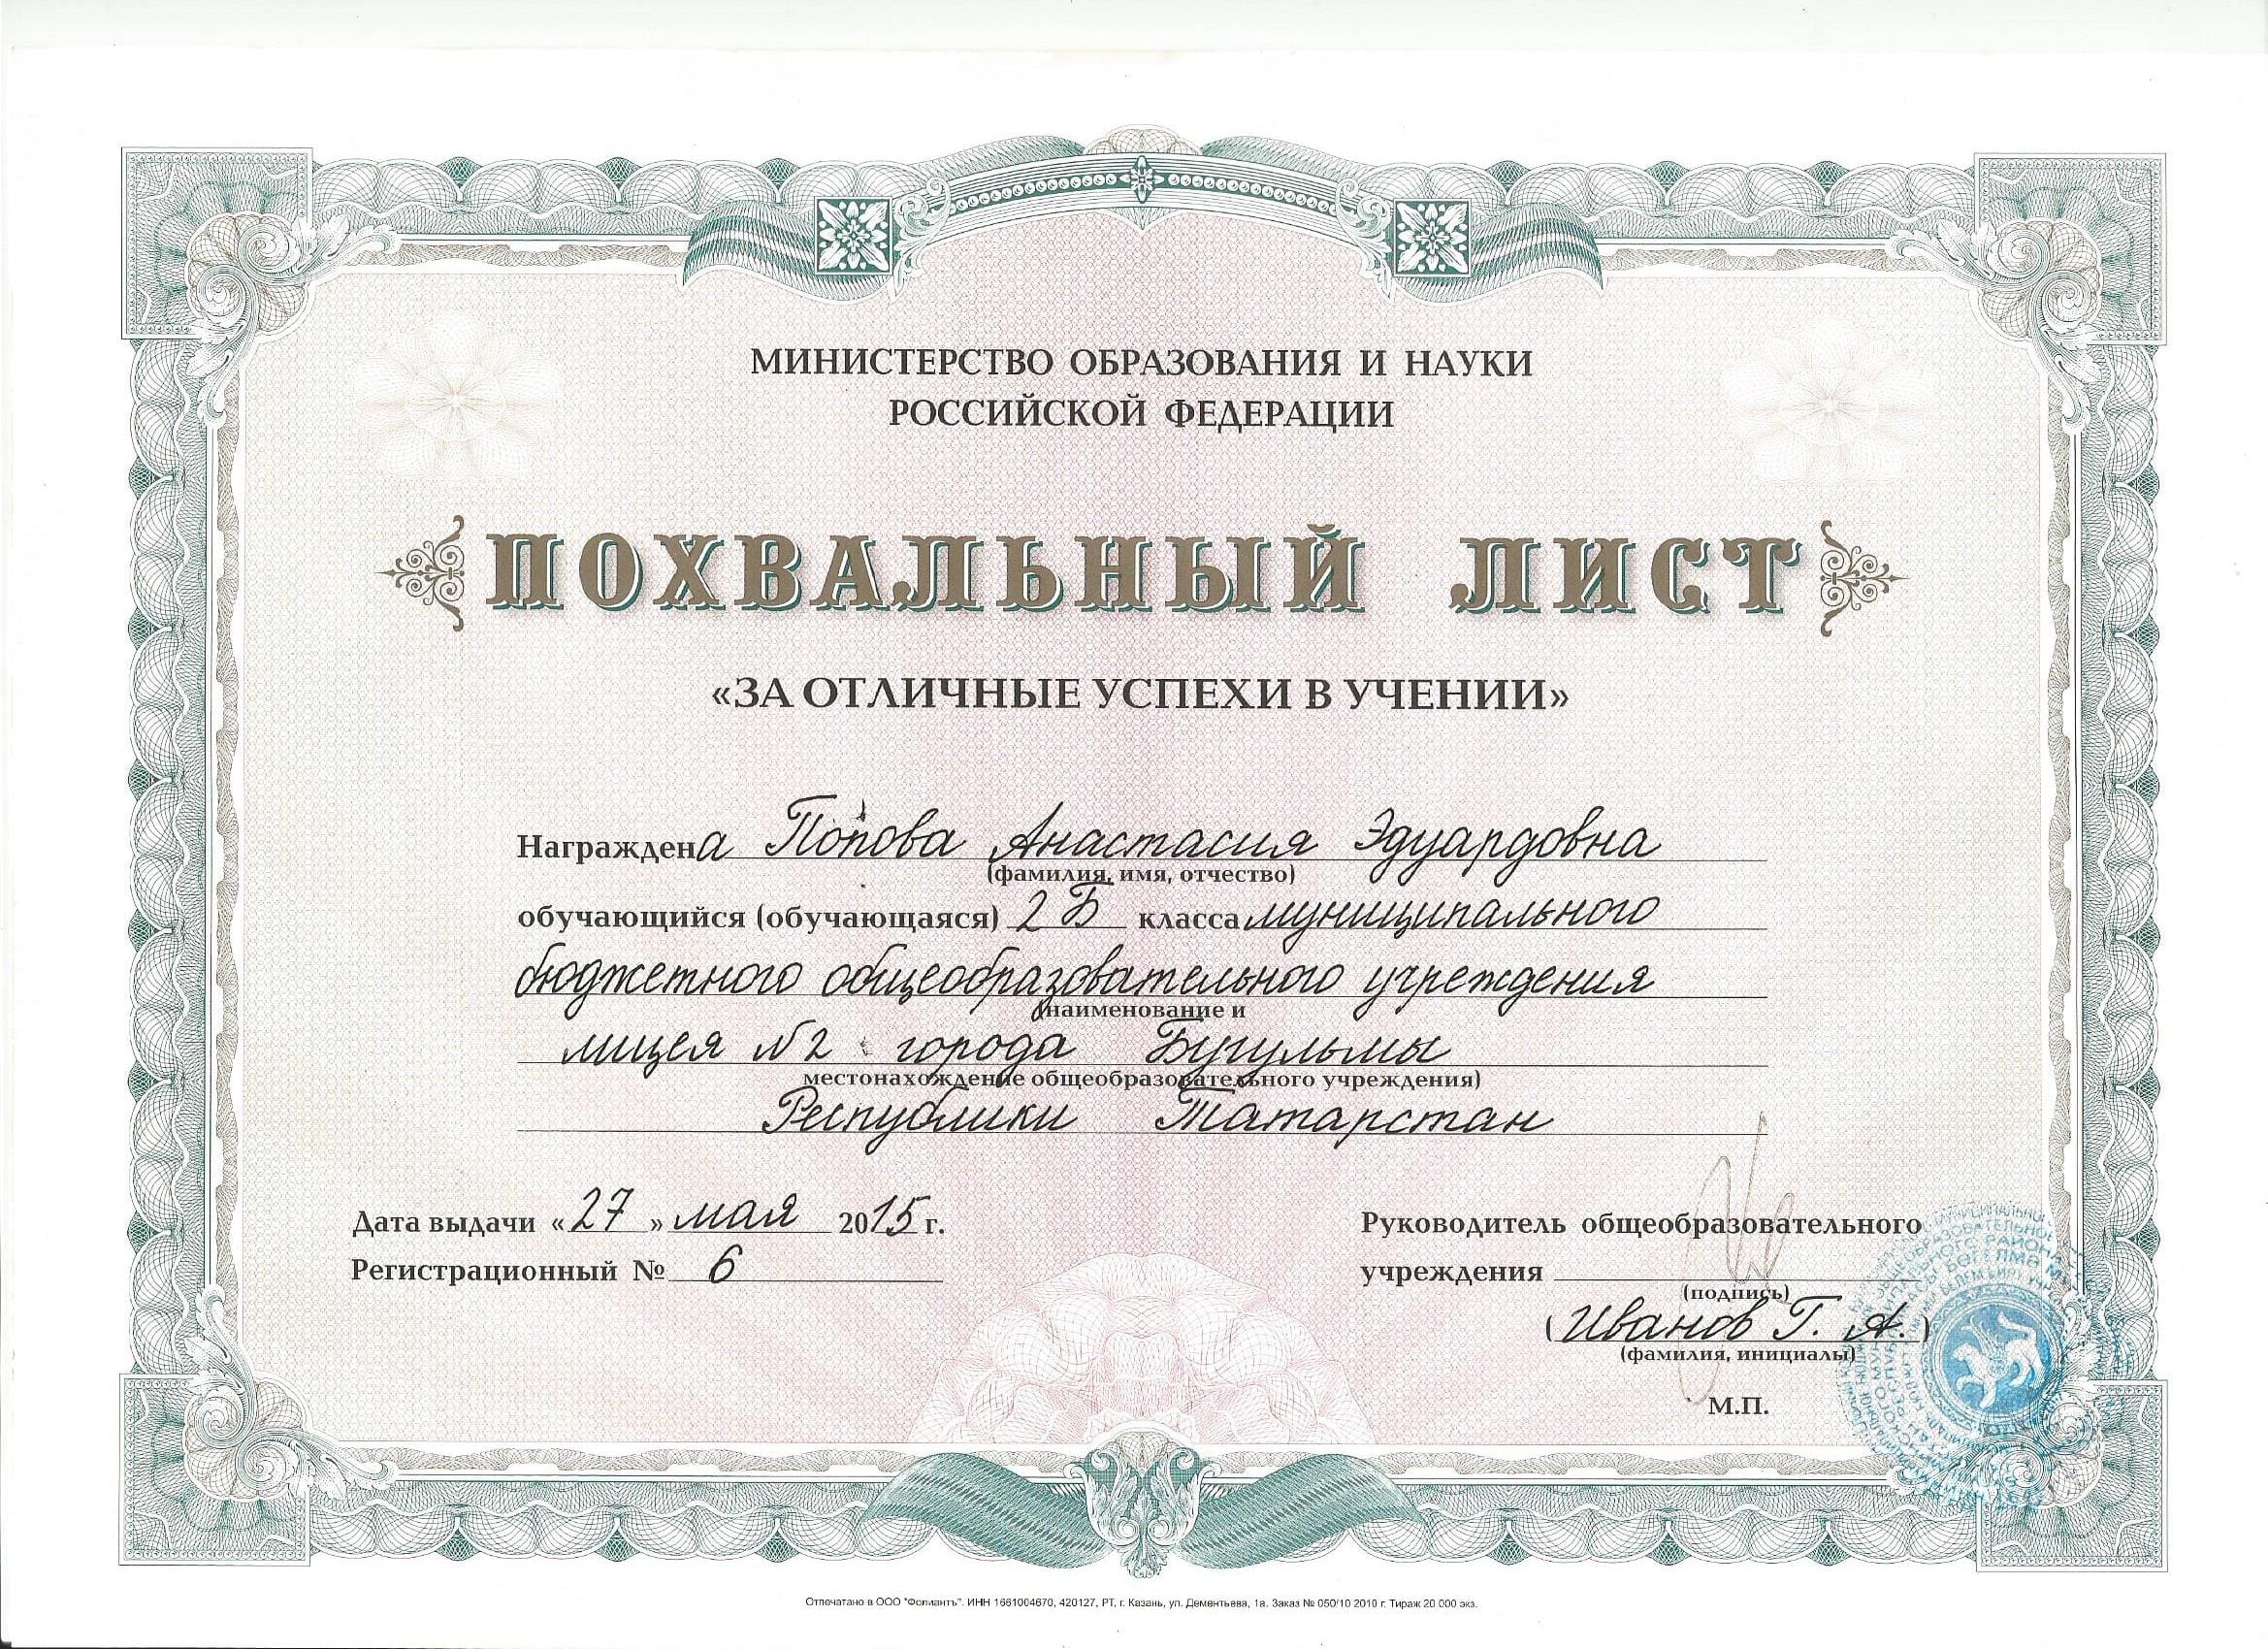 МИНИСТЕРСТВО ОБРАЗОВАНИЯ И НАУКИ
РОССИЙСКОЙ ФЕДЕРАЦИИ
ПОХВАЛЬНЫЙ ЛИСТ
«ЗА ОТЛИЧНЫЕ УСПЕХИ В УЧЕНИИ»
Награждена Попова Анастасия Эдуардовна
(фамилия, имя, отчество)
обучающийся (обучающаяся) 2 Б класса муниципального
бюджетного общеобразовательного учреждения
(наименование и
лицея №2 города Бугульмы
местонахождение общеобразовательного учреждения)
Республики Татарстан
Дата выдачи «27» мая 2015 г.
Регистрационный № 6
Руководитель общеобразовательного
учреждения
(подпись)
(Иванов Г. А.)
(фамилия, инициалы)
М.П.
Отпечатано в ООО "Фолиантъ". ИНН 1661004670, 420127, РТ, г. Казань, ул. Дементьева, 1а. Заказ № 050/10 2010 г. Тираж 20 000 экз.